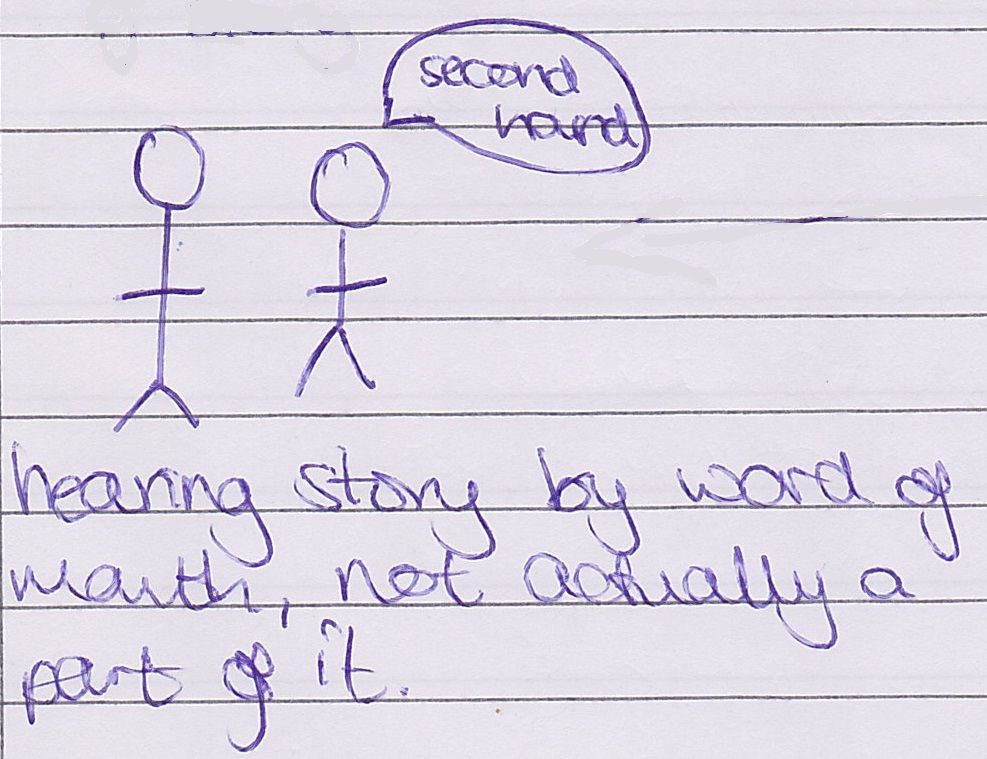 second
hand
hearing story by word of
mouth, not actually a
part of it.